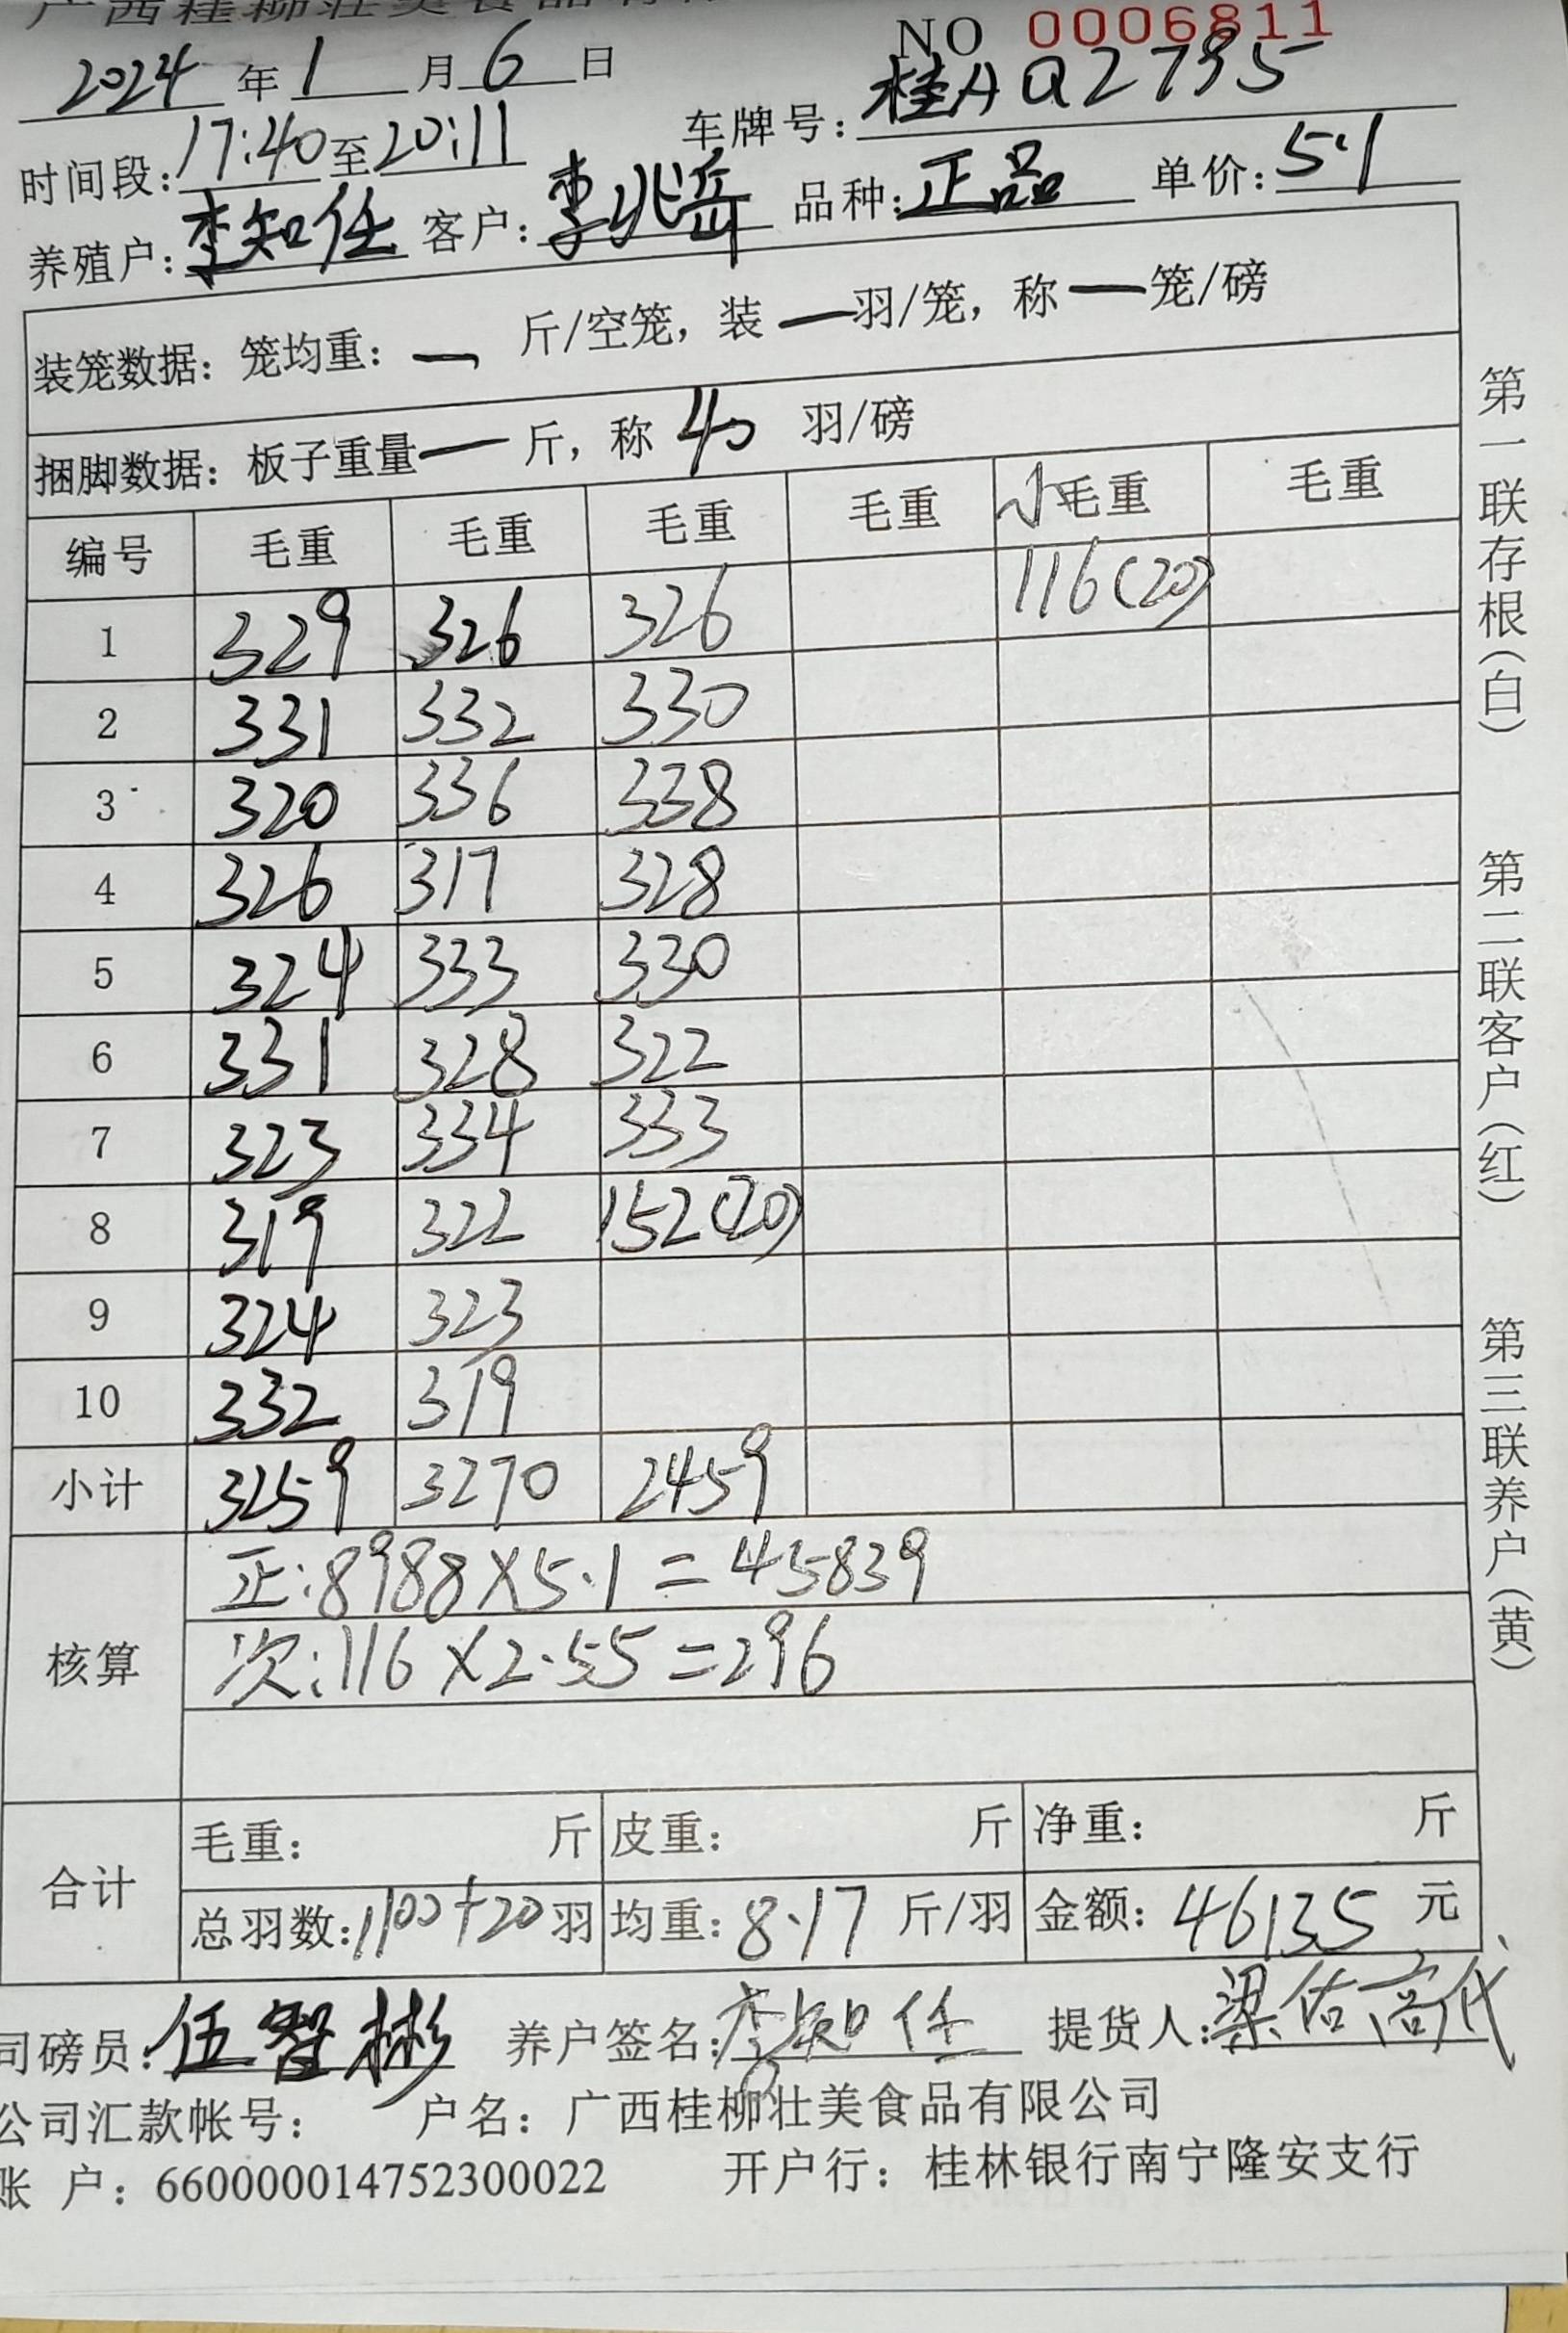 广西桂柳壮美食品有限
NO 0006811
2024 年 1 月 6 日
时间段: 17:40 至 20:11 车牌号: 桂A Q2795
养殖户: 李知任 客户: 李兆岳 品种: 正品 单价: 5.1
装笼数据: 笼均重: — 斤/空笼, 装 — 羽/笼, 称 — 笼/磅
捆脚数据: 板子重量 — 斤, 称 40 羽/磅
编号 毛重 毛重 毛重 毛重 小毛重 毛重
1 329 326 326 116(20)
2 331 332 330
3 320 336 338
4 326 317 328
5 324 333 330
6 331 328 322
7 323 334 333
8 319 322 152(20)
9 324 323
10 332 319
小计 3259 3270 2459
核算 正:8988×5.1=45839
次:116×2.55=296
合计 毛重: 斤 皮重: 斤 净重: 斤
总羽数: 1100+20 羽 均重: 8.17 斤/羽 金额: 46135 元
司磅员: 伍智彬 养户签名: 李知任 提货人: 梁佑高代
公司汇款帐号: 户名: 广西桂柳壮美食品有限公司
账 户: 660000014752300022 开户行: 桂林银行南宁隆安支行
第一联存根(白)
第二联客户(红)
第三联养户(黄)